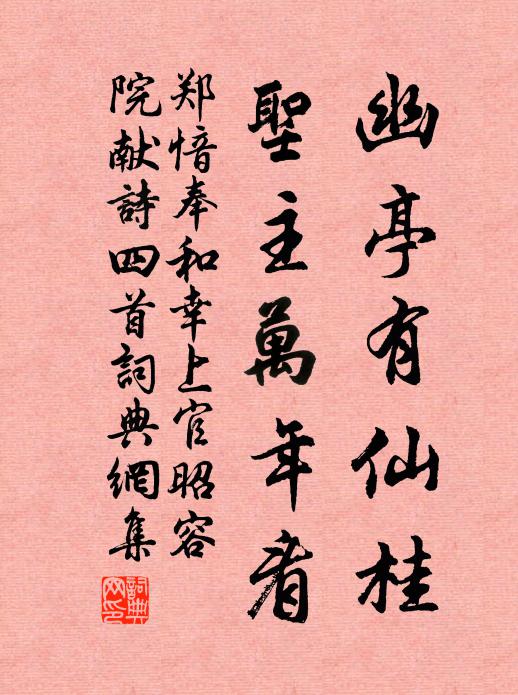 幽亭有仙桂
聖主萬年看
郑愔奉和幸上官昭容
院献詩四首詞典網集
詞典网印